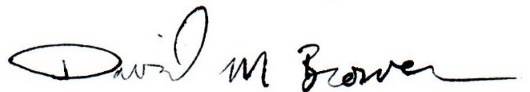 David M Brower